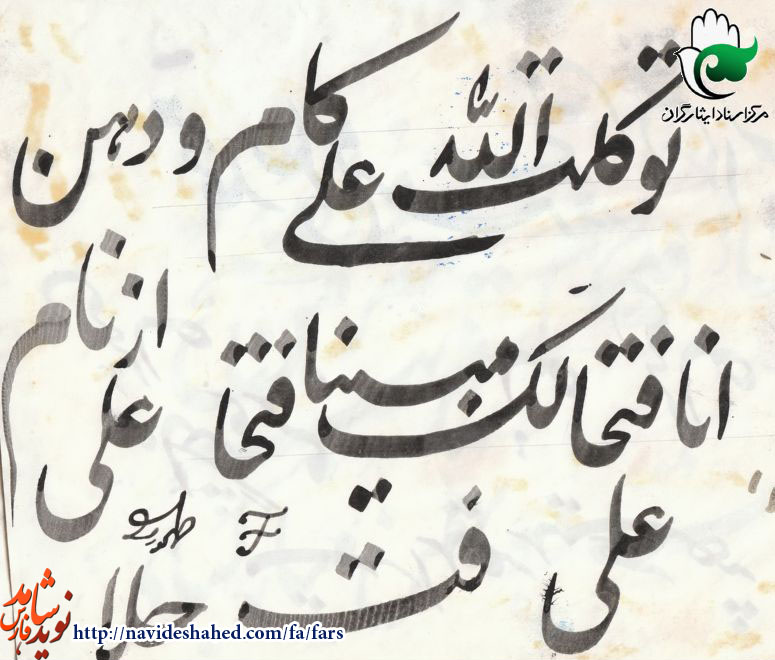 مرکز اسناد ایثارگران
توکلت الله علی کام و دهن
از نام
انا فتحا لک مبینا فتحا
علی
علی
نوید شاهد فارس
http://navideshahed.com/fa/fars